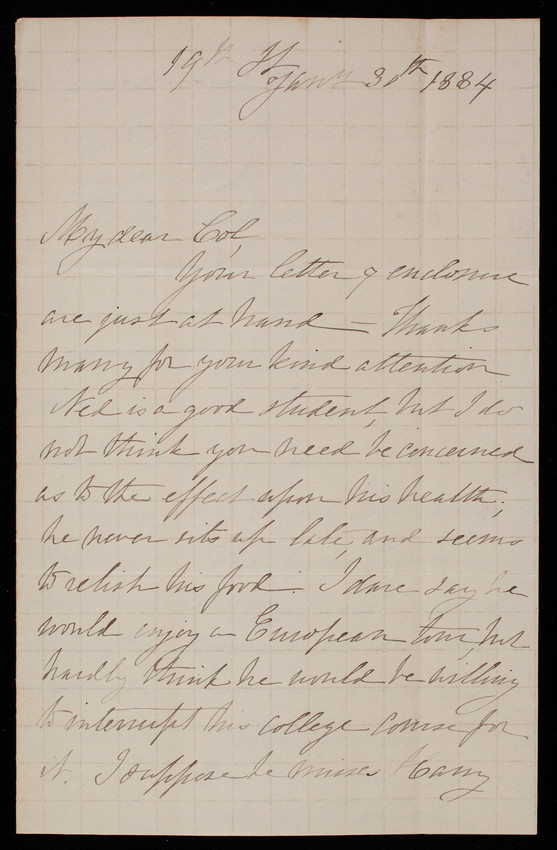 19th St
Jany 30th 1884
My dear Col,
Your letter & enclosure
are just at hand — Thanks
many for your kind attention
Ned is a good student, but I do
not think you need be concerned
as to the effect upon his health;
he never sits up late, and seems
to relish his food. I dare say he
would enjoy a European tour, but
hardly think he would be willing
to interrupt his college course for
it. I suppose he misses Harry